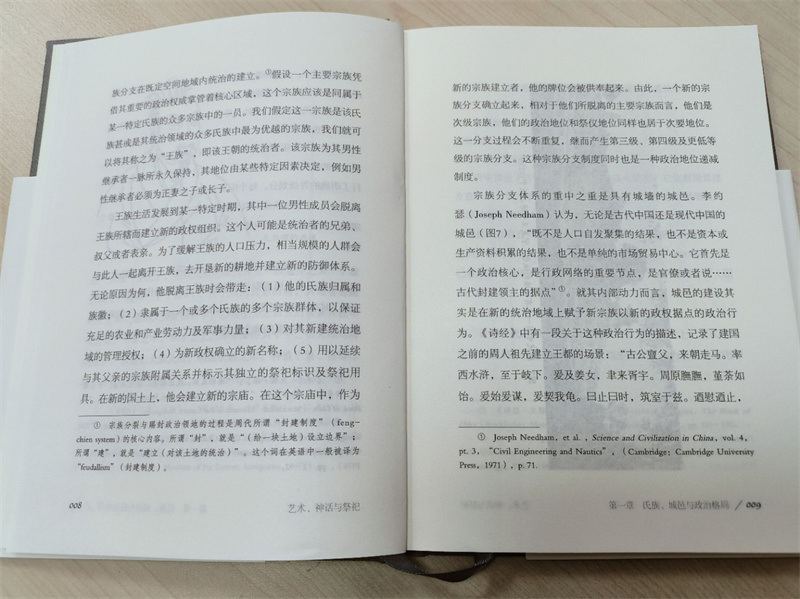 族分支在既定空间地域内统治的建立。①假设一个主要宗族凭
借其重要的政治权威掌管着核心区域，这个宗族应该是同属于
某一特定氏族的众多宗族中的一员。我们假定这一宗族是该氏
族甚或是其统治领域的众多氏族中最为优越的宗族，我们就可
以将其称之为“王族”，即该王朝的统治者。该宗族为其男性
继承者一脉所永久保持，其地位由某些特定因素决定，例如男
性继承者必须为正妻之子或长子。
王族生活发展到某一特定时期，其中一位男性成员会脱离
王族所辖而建立新的政权组织。这个人可能是统治者的兄弟、
叔父或者表亲。为了缓解王族的人口压力，相当规模的人群会
与此人一起离开王族，去开垦新的耕地并建立新的防御体系。
无论原因为何，他脱离王族时会带走：（1）他的氏族归属和
族徽；（2）隶属于一个或多个氏族的多个宗族群体，以保证
充足的农业和产业劳动力及军事力量；（3）对其新建统治地
域的管理授权；（4）为新政权确立的新名称；（5）用以延续
与其父亲的宗族附属关系并标示其独立的祭祀标识及祭祀用
具。在新的国土上，他会建立新的宗庙。在这个宗庙中，作为
① 宗族分裂与赐封政治领地的过程是周代所谓“封建制度”（feng-
chien system）的核心内容。所谓“封”，就是“（给一块土地）设立边界”；
所谓“建”，就是“建立（对该土地的统治）”。这个词在英语中一般被译为
“feudalism”（封建制度）。
008
艺术、神话与祭祀
新的宗族建立者，他的牌位会被供奉起来。由此，一个新的宗
族分支确立起来，相对于他们所脱离的主要宗族而言，他们是
次级宗族，他们的政治地位和祭仪地位同样也居于次要地位。
这一分支过程会不断重复，继而产生第三级、第四级及更低等
级的宗族分支。这种宗族分支制度同时也是一种政治地位递减
制度。
宗族分支体系的重中之重是具有城墙的城邑。李约
瑟（Joseph Needham）认为，无论是古代中国还是现代中国的
城邑（图7），“既不是人口自发聚集的结果，也不是资本或
生产资料积累的结果，也不是单纯的市场贸易中心。它首先是
一个政治核心，是行政网络的重要节点，是官僚或者说……
古代封建领主的据点”①。就其内部动力而言，城邑的建设其
实是在新的统治地域上赋予新宗族以新的政权据点的政治行
为。《诗经》中有一段关于这种政治行为的描述，记录了建国
之前的周人祖先建立王都的场景：“古公亶父，来朝走马。率
西水浒，至于岐下。爰及姜女，聿来胥宇。周原膴膴，堇荼如
饴。爰始爰谋，爰契我龟。曰止曰时，筑室于兹。迺慰迺止，
① Joseph Needham, et al., Science and Civilization in China, vol. 4,
pt. 3, “Civil Engineering and Nautics”,（Cambridge: Cambridge University
Press, 1971）, p. 71.
第一章 氏族、城邑与政治格局 / 009